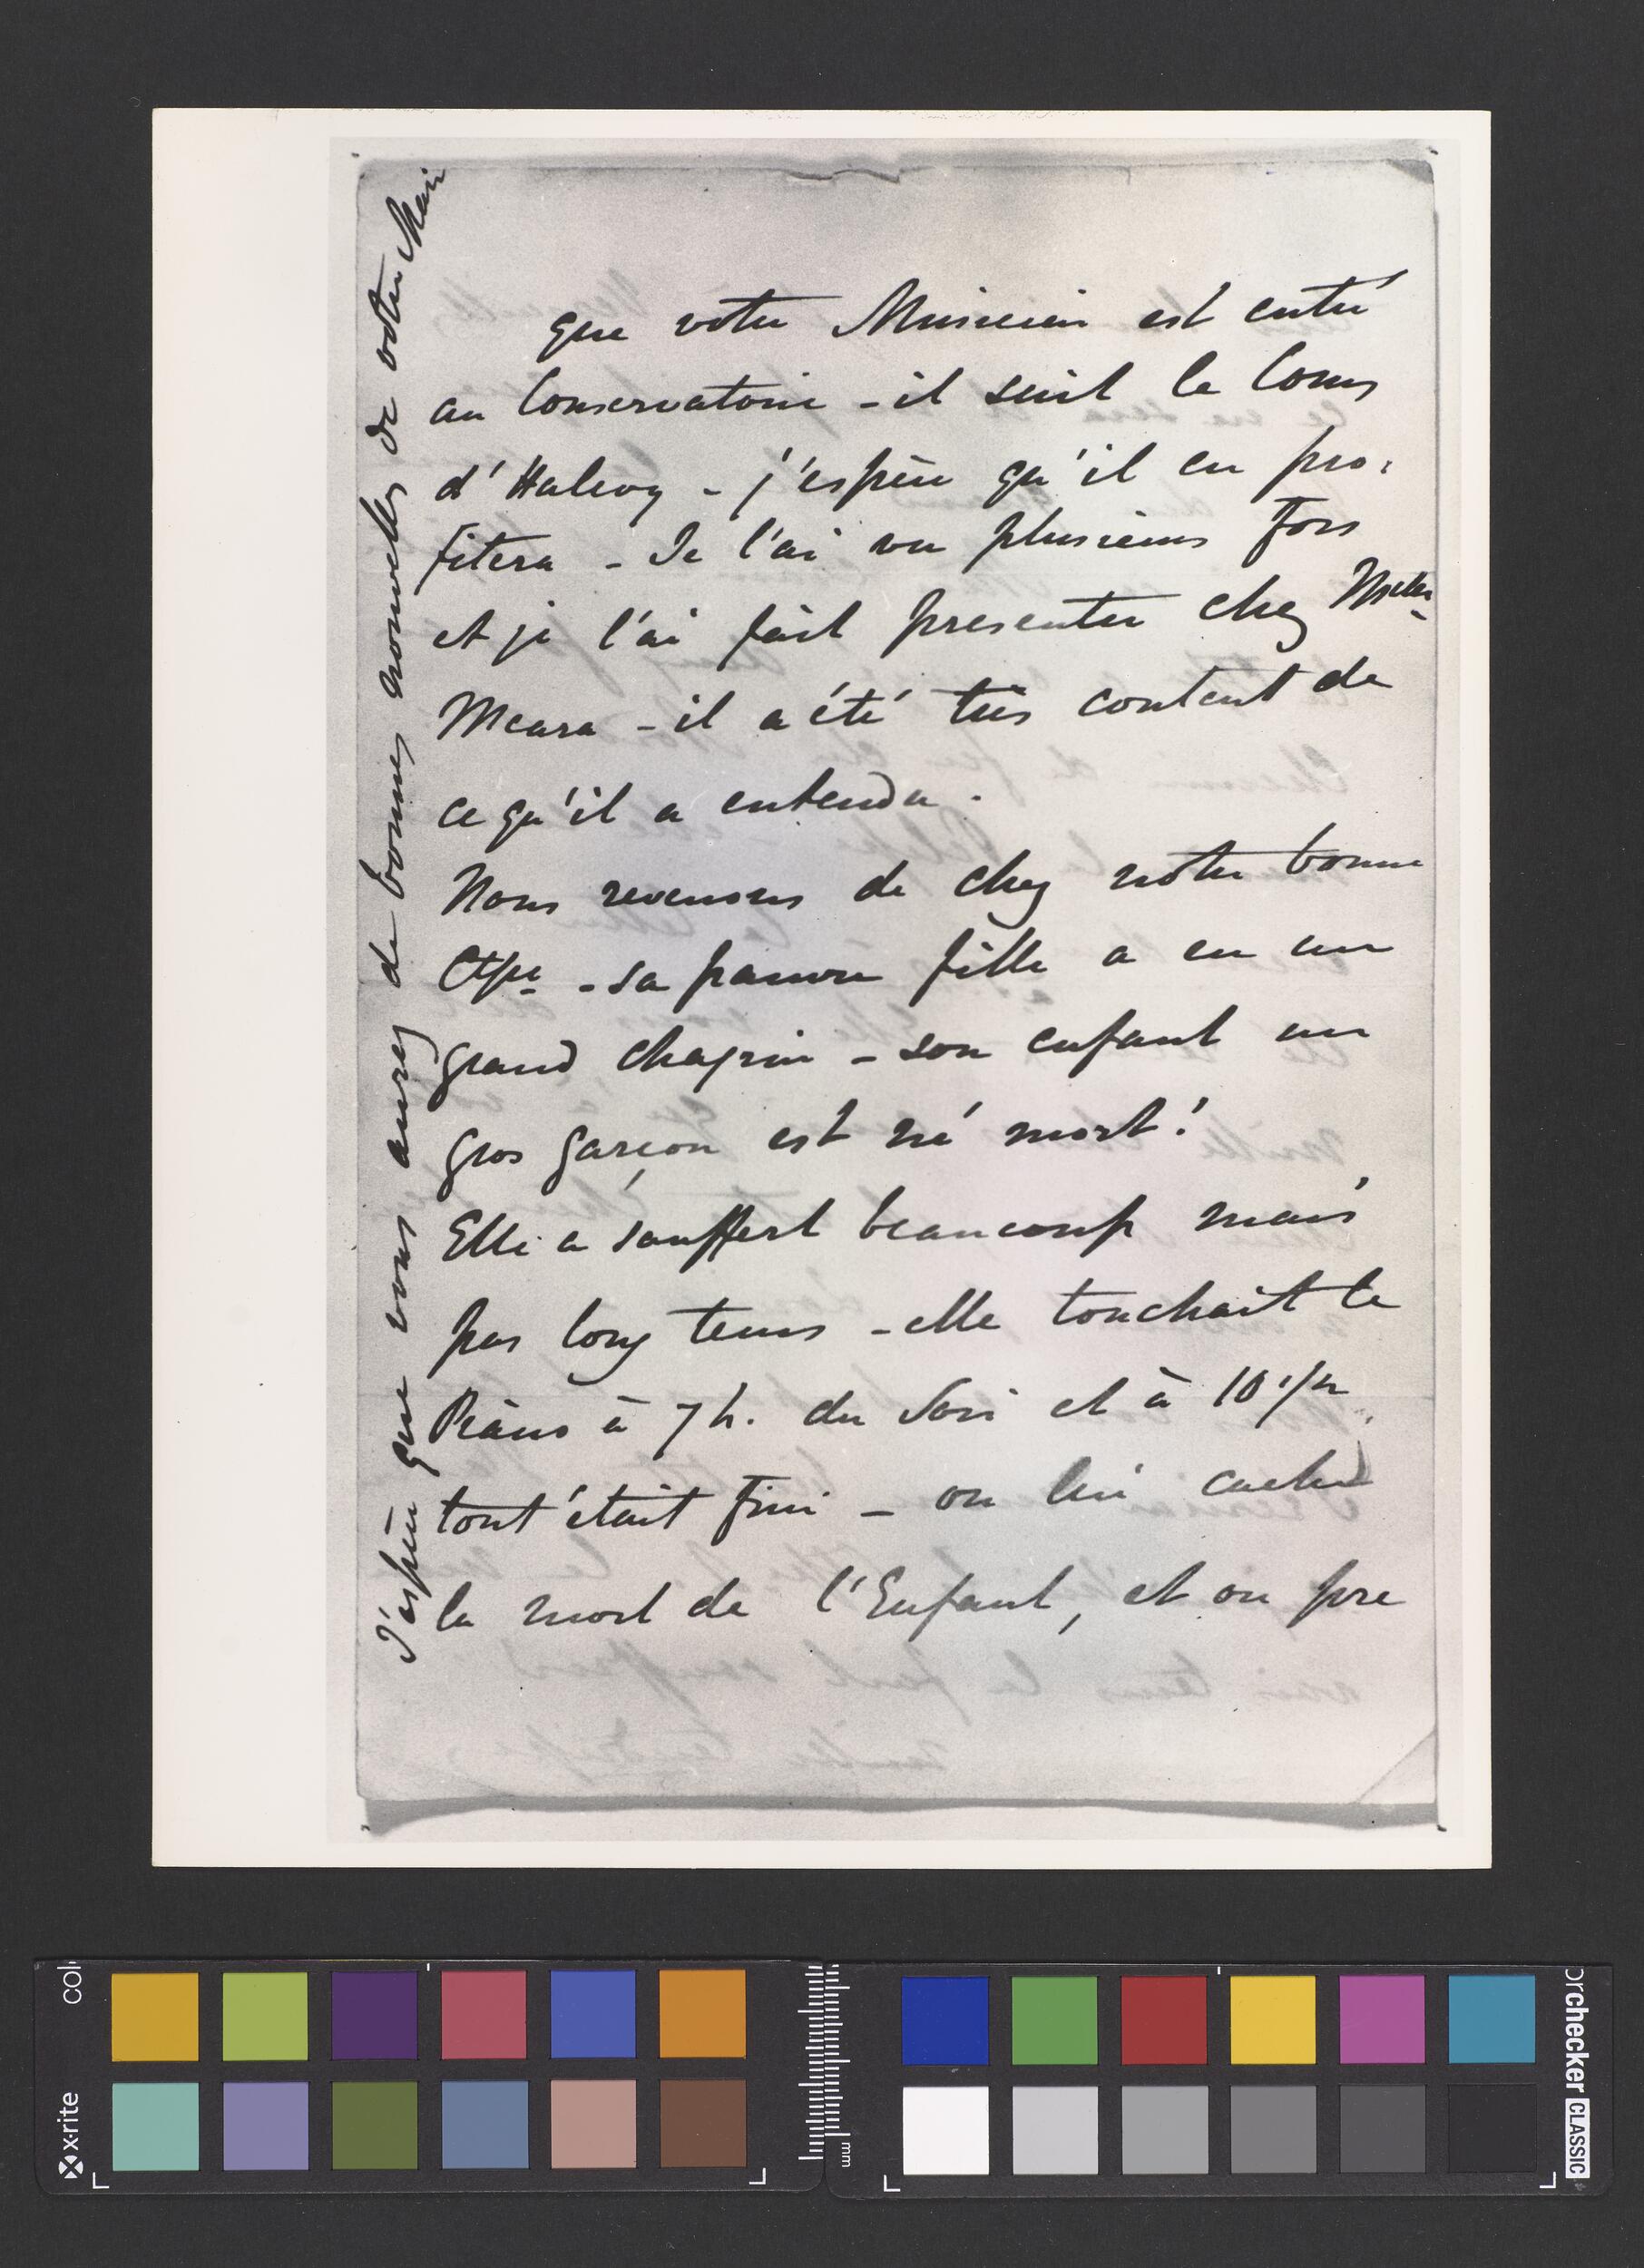 que votre Musicien est entré
au Conservatoire - il suit le Cours
d'Halevy - j'espère qu'il en pro-
fitera - Je l'ai vu plusieurs fois
et je l'ai fait presenter chez
Meara - il a été très content de
ce qu'il a entendu.
Nous revenons de chez notre bonne
Ctsse - sa pauvre fille a eu un
grand chagrin - son enfant un
gros garçon est né mort!
Elle a souffert beaucoup mais
pas long tems - elle touchait le
Piano à 7 h. du Soir et à 10 1/2
tout était fini - on lui cache
la mort de l'Enfant, et on pre
J'espère que vous aurez de bonnes nouvelles de votre Mari
x-rite
col
mm
orchecker CLASSIC